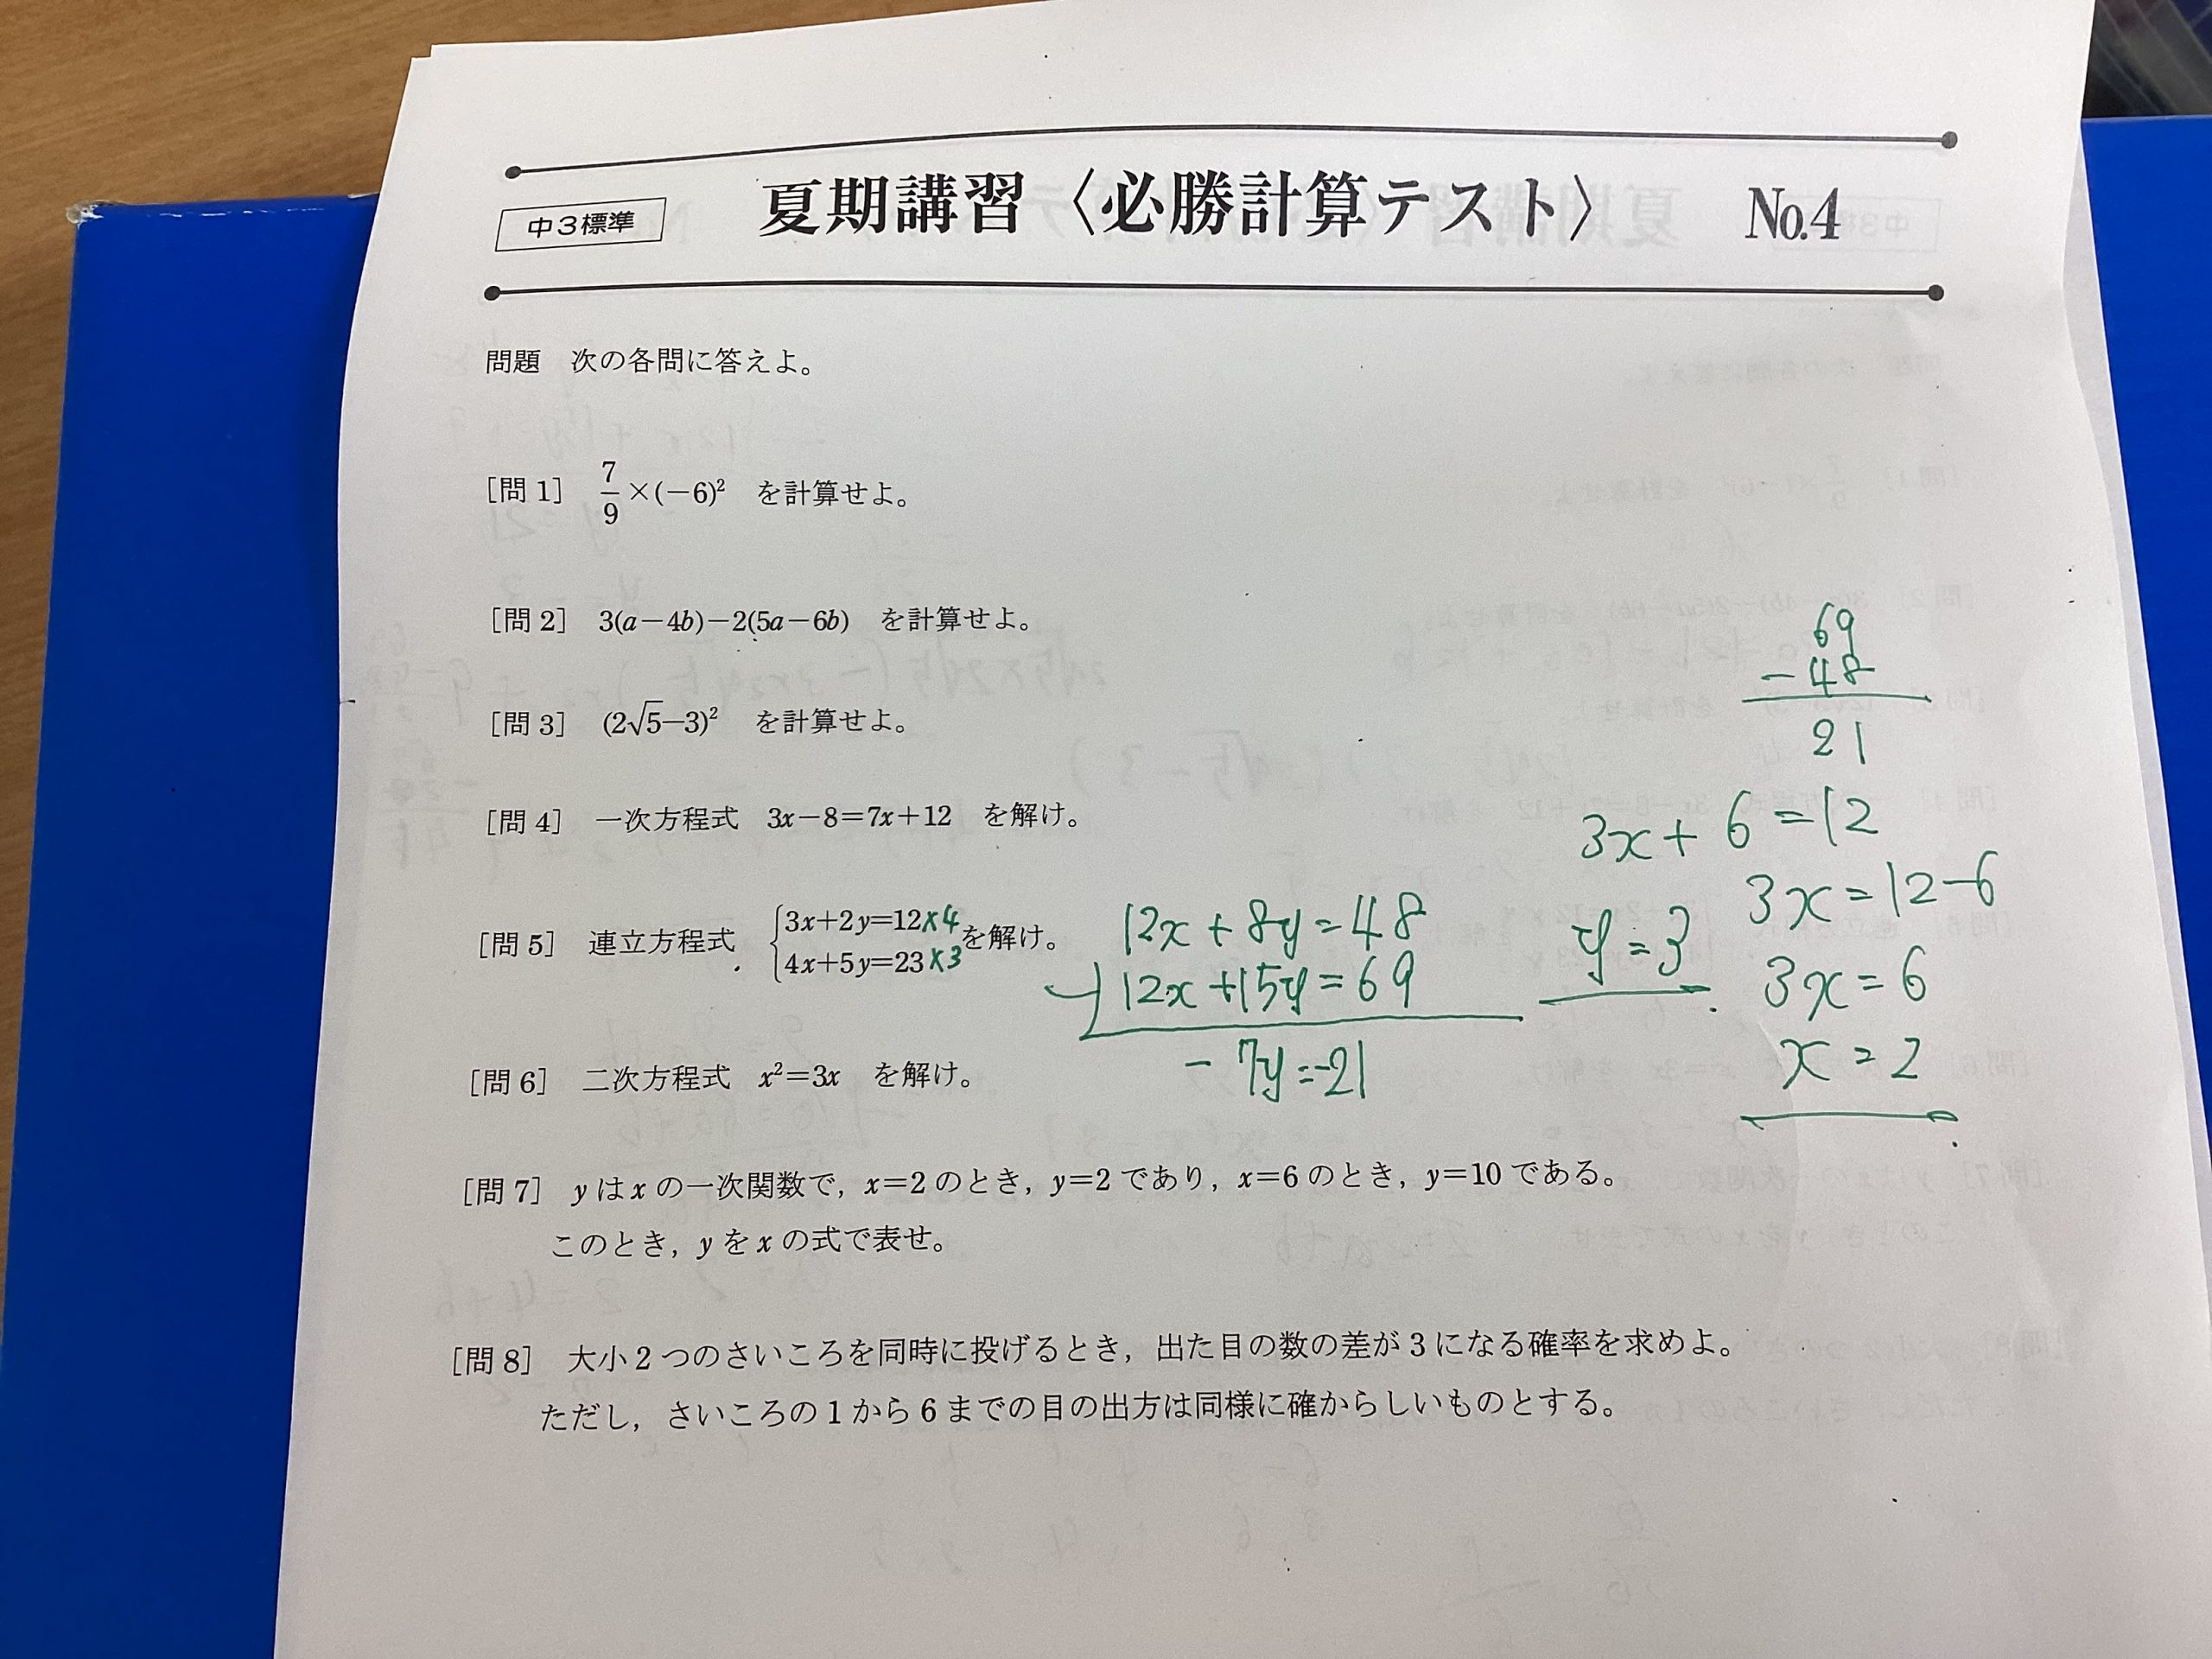 中3標準 夏期講習〈必勝計算テスト〉 No.4
問題 次の各問に答えよ。
[問1] 7/9×(−6)² を計算せよ。
[問2] 3(a−4b)−2(5a−6b) を計算せよ。
[問3] (2√5−3)² を計算せよ。
[問4] 一次方程式 3x−8=7x+12 を解け。
[問5] 連立方程式 {3x+2y=12×4
4x+5y=23×3 を解け。
12x+8y=48
−) 12x+15y=69
−7y=−21
y=3
69
−48
21
3x+6=12
3x=12−6
3x=6
x=2
[問6] 二次方程式 x²=3x を解け。
[問7] yはxの一次関数で,x=2のとき,y=2であり,x=6のとき,y=10である。
このとき,yをxの式で表せ。
[問8] 大小2つのさいころを同時に投げるとき,出た目の数の差が3になる確率を求めよ。
ただし,さいころの1から6までの目の出方は同様に確からしいものとする。